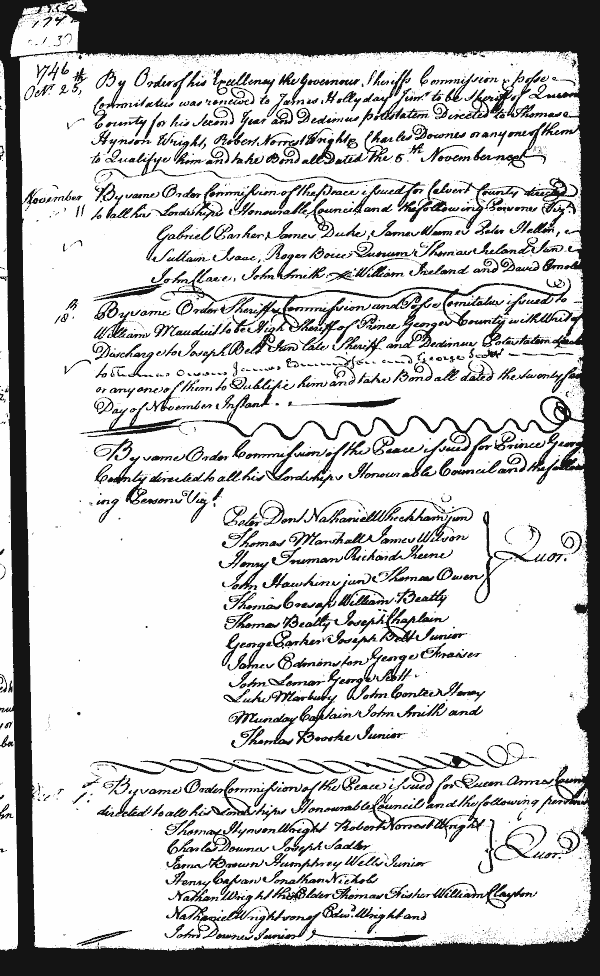 1746
Octr. 25th
By Order of his Excellency the Governour, Sheriffs Commission & posse
Commitatus was renewed to James Hollyday Junr. to be Sheriff of Queen
County for his Second Year and Dedimus potestatem Directed to Thomas
Hynson Wright, Robert Norrest Wright & Charles Downes or any one of them
to Qualifye him and take Bond all Dated the 5th November next
November 11
By same Order Commission of the Peace issued for Calvert County directed
to all his Lordships Honourable Council and the following Persons Vizt.
Gabriel Parker James Duke, James Weems Peter Hellen,
Isaac, Roger Boice Quorum Thomas Ireland
John Smith William Ireland and David Arnold
18th
By same Order Sheriffs Commission and Posse Comitatus issued to
William Mauduit to be High Sheriff of Prince Georges County with Writ of
Discharge to Joseph Belt Junr. late Sheriff and Dedimus Potestatem
to Thomas Owens James Edmonston and George Scott
or any one of them to Qualifye him and take Bond all dated the twenty
Day of November Instant.
By same Order Commission of the Peace issued for Prince Georg
County directed to all his Lordships Honourable Council and the follow
ing Persons Vizt.
Peter Dent Nathaniel Wheckham jun
Thomas Marshall James Wilson
Henry Truman Richard Keene
John Hawkins jun Thomas Owen
Quor.
Thomas Cresap William Beatty
Thomas Beatty Joseph Chaplain
George Parker Joseph Belt Junior
James Edmonston George Fraiser
John Lemar George Scott
Luke Marbury John Contee Henry
Munday Captain John Smith and
Thomas Brooke Junior
By same Order Commission of the Peace issued for Queen Annes Coun
directed to all his Lordships Honourable Council and the following persons
Thomas Hynson Wright Robert Norrest Wright
Charles Downes Joseph Sadler
James Brown Humphrey Wells Junior
Quor.
Henry Cason Jonathan Nichols
Nathan Wright the Elder Thomas Fisher William Clayton
Nathaniel Wright son of Edwd. Wright and
John Downes Junior